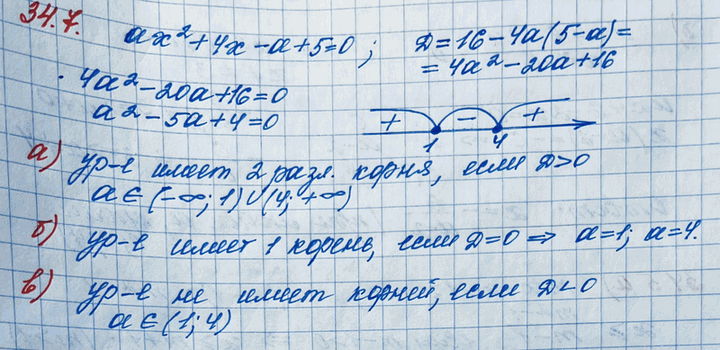 34.7.
ax² + 4x - a + 5 = 0 ; D = 16 - 4a(5 - a) =
= 4a² - 20a + 16
4a² - 20a + 16 = 0
a² - 5a + 4 = 0
+ - +
1 4
а) ур-е имеет 2 разл. корня, если D > 0
a ∈ (-∞; 1) ∪ (4; +∞)
б) ур-е имеет 1 корень, если D = 0 ⇒ a = 1; a = 4.
в) ур-е не имеет корней, если D < 0
a ∈ (1; 4)